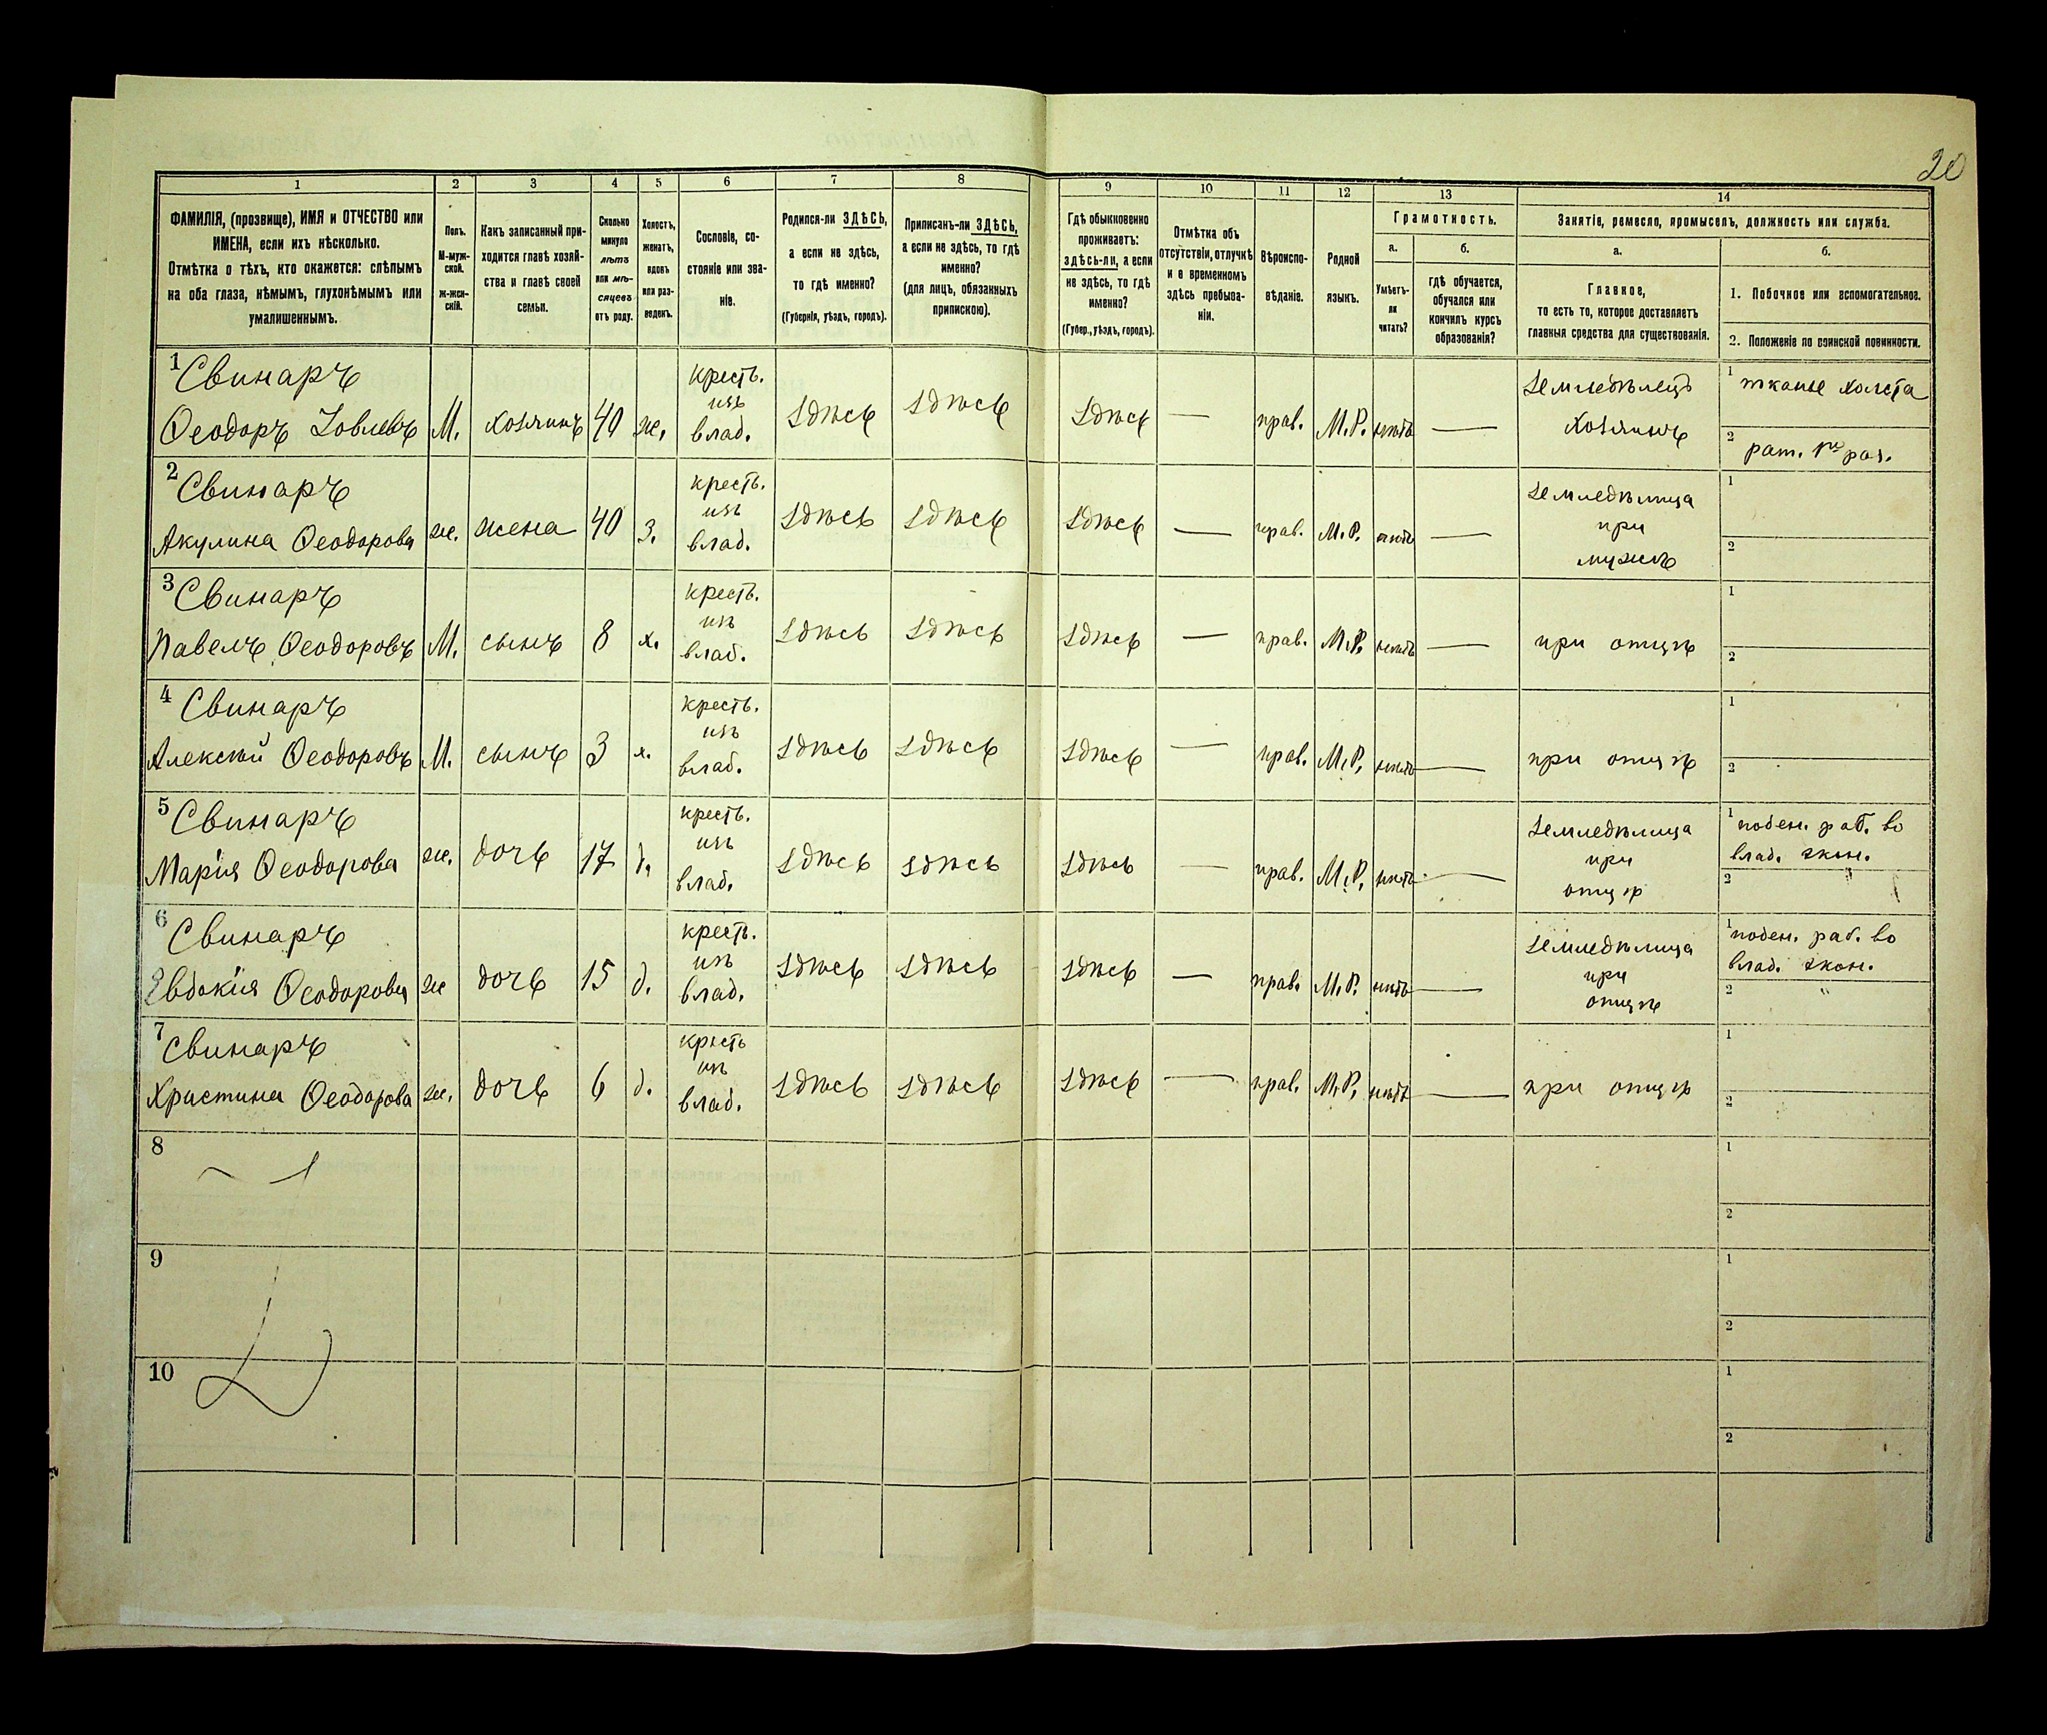 20
1 2 3 4 5 6 7 8 9 10 11 12 13 14
ФАМИЛІЯ, (прозвище), ИМЯ и ОТЧЕСТВО или
ИМЕНА, если ихъ нѣсколько.
Отмѣтка о тѣхъ, кто окажется: слѣпымъ
на оба глаза, нѣмымъ, глухонѣмымъ или
умалишеннымъ.
Полъ.
М-муж-
ской.
Ж-жен-
скій.
Какъ записанный при-
ходится главѣ хозяй-
ства и главѣ своей
семьи.
Сколько
минуло
лѣтъ
или мѣ-
сяцевъ
отъ роду.
Холостъ,
женатъ,
вдовъ
или раз-
веденъ.
Сословіе, со-
стояніе или зва-
ніе.
Родился-ли ЗДѢСЬ,
а если не здѣсь,
то гдѣ именно?
(Губернія, уѣздъ, городъ).
Приписанъ-ли ЗДѢСЬ,
а если не здѣсь, то гдѣ
именно?
(для лицъ, обязанныхъ
припискою).
Гдѣ обыкновенно
проживаетъ:
здѣсь-ли, а если
не здѣсь, то гдѣ
именно?
(Губер., уѣздъ, городъ).
Отмѣтка объ
отсутствіи, отлучкѣ
и о временномъ
здѣсь пребыва-
ніи.
Вѣроиспо-
вѣданіе.
Родной
языкъ.
Грамотность.
а.
Умѣетъ-
ли
читать?
б.
гдѣ обучается,
обучался или
кончилъ курсъ
образованія?
Занятіе, ремесло, промыселъ, должность или служба.
а.
Главное,
то есть то, которое доставляетъ
главныя средства для существованія.
б.
1. Побочное или вспомогательное.
2. Положеніе по воинской повинности.
1 Свинаръ крестъ. Земледѣлецъ 1 тканье холста
изъ
Ѳеодоръ М. хозяинъ 40 ж. влад. здѣсь здѣсь здѣсь — прав. М.Р. нѣтъ — Хозяинъ 2 рат. 1го раз.
2 Свинаръ крестъ. Земледѣлица 1
изъ при
Акулина Ѳеодорова ж. жена 40 з. влад. здѣсь здѣсь здѣсь — прав. М.Р. нѣтъ — мужѣ 2
3 Свинаръ крестъ. 1
изъ
Павелъ Ѳеодоровъ М. сынъ 8 х. влад. здѣсь здѣсь здѣсь — прав. М.Р. нѣтъ — при отцѣ 2
4 Свинаръ крестъ. 1
изъ
Алексѣй Ѳеодоровъ М. сынъ 3 х. влад. здѣсь здѣсь здѣсь — прав. М.Р. нѣтъ — при отцѣ 2
5 Свинаръ крестъ. Земледѣлица 1 поден. раб. во
изъ при влад. экон.
Марія Ѳеодорова ж. дочь 17 д. влад. здѣсь здѣсь здѣсь — прав. М.Р. нѣтъ — отцѣ 2 "
6 Свинаръ крестъ. Земледѣлица 1 поден. раб. во
изъ при влад. экон.
Евдокія Ѳеодорова ж дочь 15 д. влад. здѣсь здѣсь здѣсь — прав. М.Р. нѣтъ — отцѣ 2 "
7 Свинаръ крестъ 1
изъ
Христина Ѳеодорова ж. дочь 6 д. влад. здѣсь здѣсь здѣсь — прав. М.Р. нѣтъ — при отцѣ 2
8 1
2
9 1
2
10 1
2